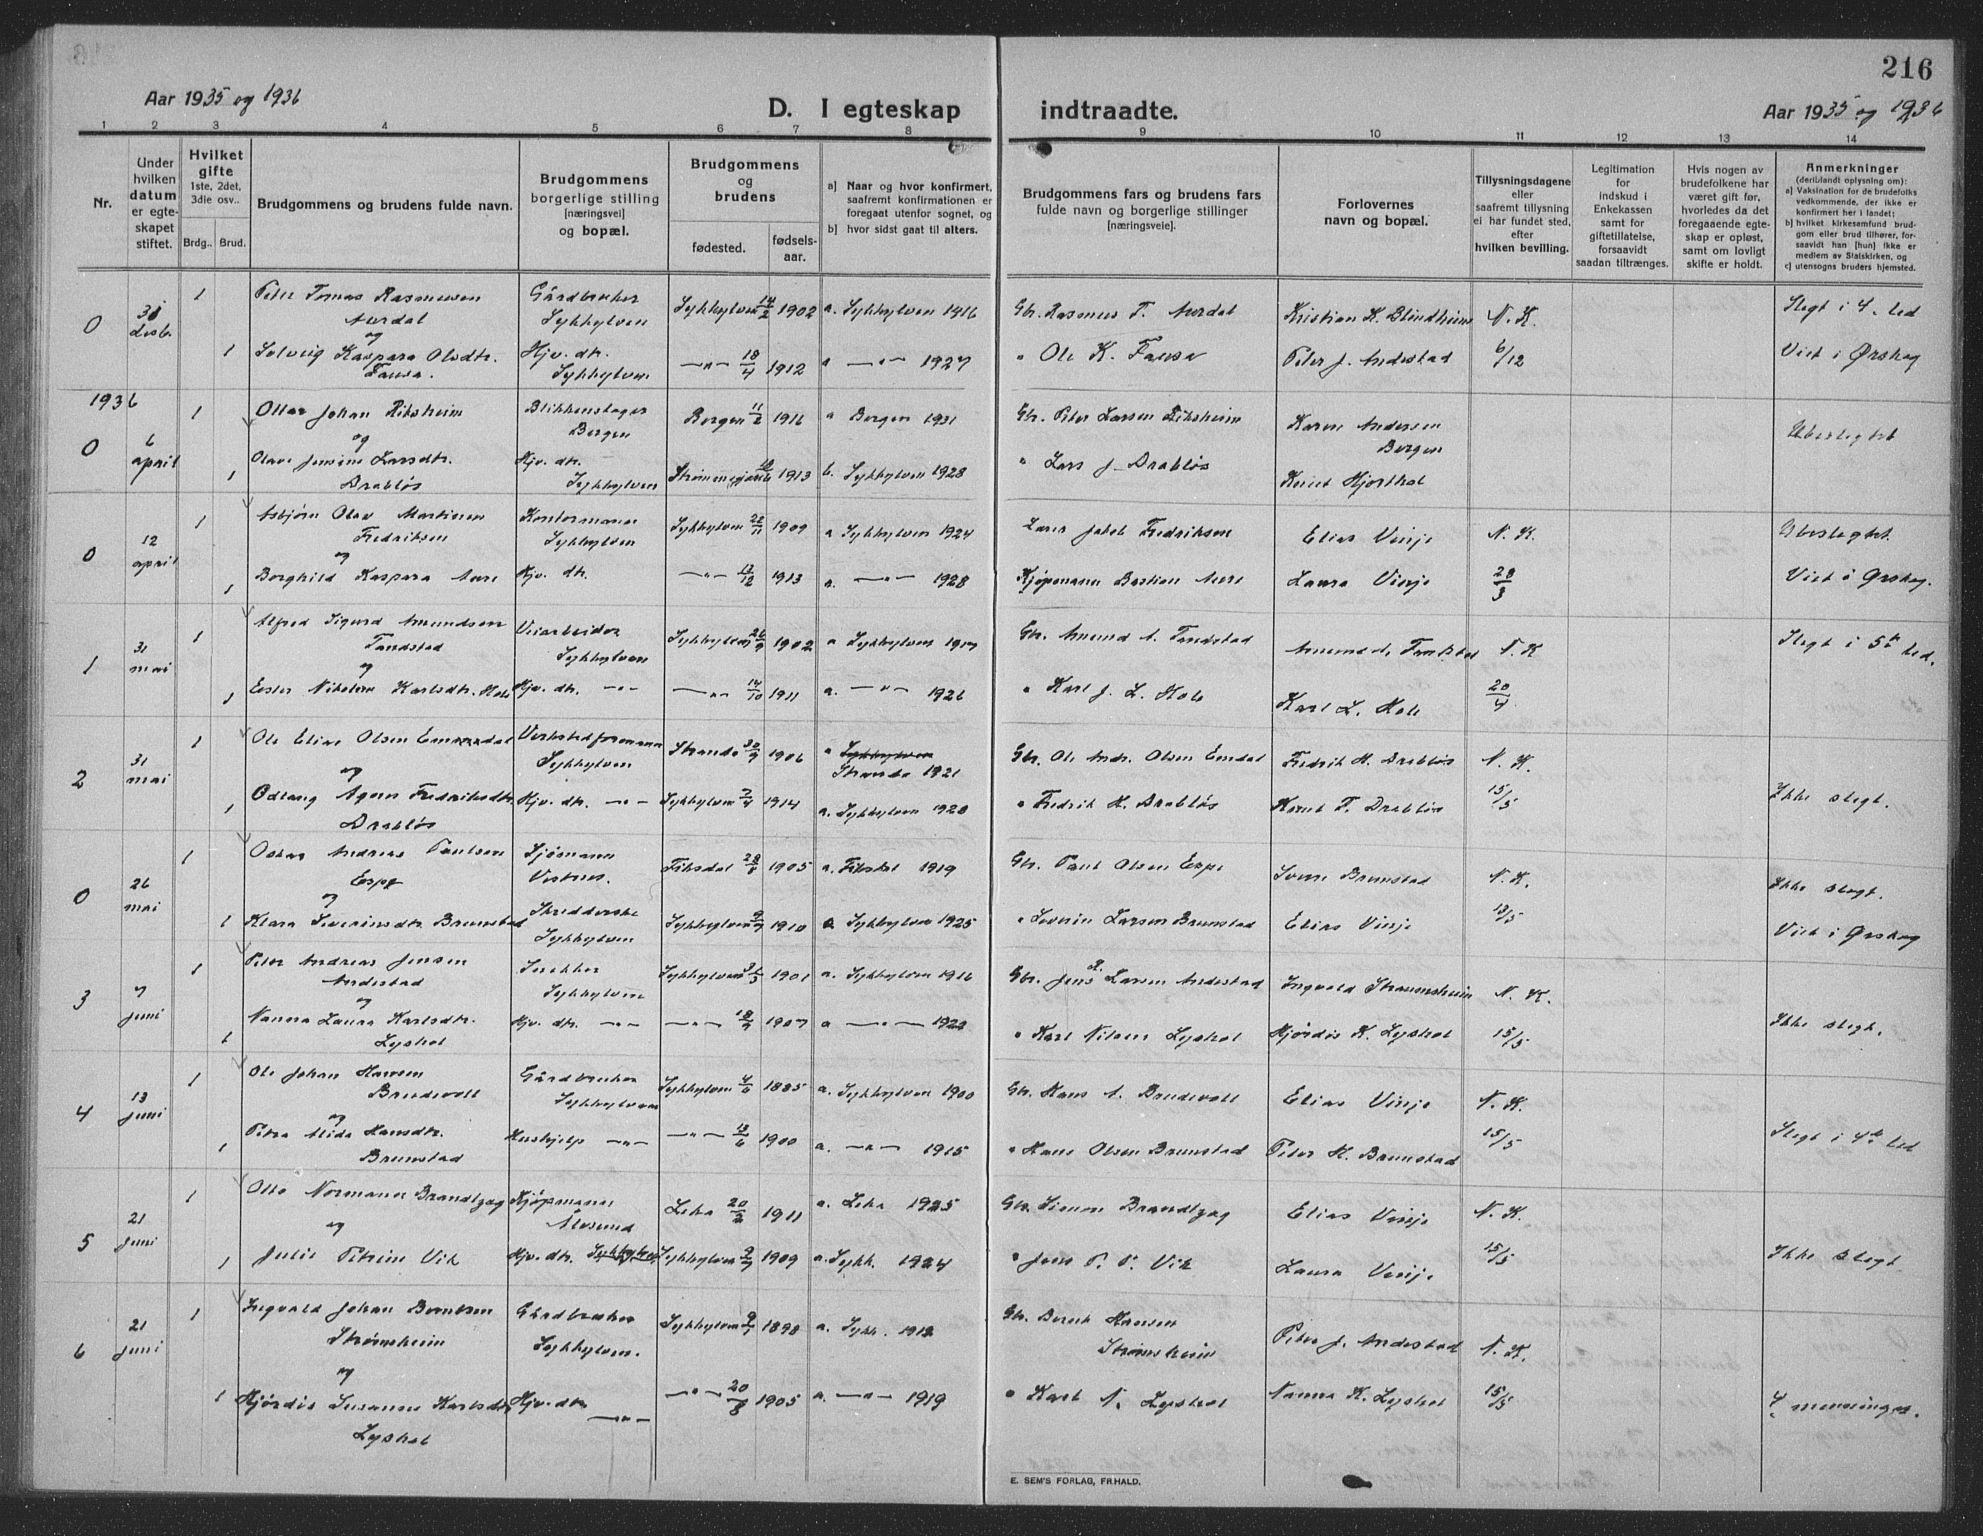 216
Aar 1935 og 1936
D. I egteskap indtraadte.
Aar 1935 og 1936
1 2 3 4 5 6 7 8 9 10 11 12 13 14
Nr.
Under hvilken datum er egte-skapet stiftet.
Hvilket gifte 1ste, 2det, 3die osv..
Brdg.. Brud.
Brudgommens og brudens fulde navn.
Brudgommens borgerlige stilling [næringsvei] og bopæl.
Brudgommens og brudens
fødested.
fødsels-aar.
a] Naar og hvor konfirmert, saafremt konfirmationen er foregaat utenfor sognet, og
b] hvor sidst gaat til alters.
Brudgommens fars og brudens fars fulde navn og borgerlige stillinger [næringsveie].
Forlovernes navn og bopæl.
Tillysningsdagene eller saafremt tillysning ei har fundet sted, efter hvilken bevilling.
Legitimation for indskud i Enkekassen samt for giftetillatelse, forsaavidt saadan tiltrænges.
Hvis nogen av brudefolkene har været gift før, hvorledes da det foregaaende egte-skap er opløst, samt om lovligt skifte er holdt.
Anmerkninger (deriblandt oplysning om):
a) Vaksination for de brudefolks vedkommende, der ikke er konfirmert her i landet;
b) hvilket kirkesamfund brud-gom eller brud tilhører, for-saavidt han [hun] ikke er medlem av Statskirken, og
c) utensogns bruders hjemsted.
0 31 desb. 1 Peter Tomas Rasmussen Aurdal Gårdbruker Sykkylven Sykkylven 14/2 1902 a. Sykkylven 1916 Gbr. Rasmus T. Aurdal Kristian K. Blindheim N. K. Slegt i 4. led
og
1 Solveig Kaspara Olsdtr. Fausa. Hjv. dtr. Sykkylven —"— 18/4 1912 a —"— 1927 " Ole K. Fausa Peter J. Andestad 6/12 Viet i Ørskog
1936
0 6 april 1 Ottar Johan Riksheim Blikkenslager Bergen Bergen 11/2 1911 a Bergen 1931 Gbr. Peter Larsen Riksheim Karen Andersen Bergen Ubeslegtet
og
1 Olave Jensine Larsdtr. Drabløs Hjv. dtr. Sykkylven 1913 b. Sykkylven 1928 " Lars J. Drabløs Knut Hjorthol
0 12 april 1 Asbjørn Olav Martinus Fredriksen Kontormann Sykkylven Sykkylven 22/11 1909 a Sykkylven 1924 Jakob Fredriksen Elias Vinje N. K. Ubeslegtet.
og
1 Borghild Kaspara Aure Hjv. dtr. —"— 13/12 1913 a. —"— 1928 Kjøpmann Bastian Aure Laura Vinje 28/3 Viet i Ørskog.
1 31 mai 1 Alfred Sigurd Amundsen Tandstad Veiarbeider Sykkylven Sykkylven 26/9 1902 a Sykkylven 1917 Gbr. Amund A. Tandstad Amund A. Tandstad N. K Slegt i 5te led.
og
1 Ester Nikoline Karlsdtr. Hole Hjv. dtr. —"— —"— 14/10 1911 a. —"— 1926 " Karl J. L. Hole Karl L. Hole 20/4
2 31 mai 1 Ole Elias Olsen Emdal Verkstedformann Sykkylven Stranda 1906 a Sykkylven Stranda 1921 Gbr. Ole Andr. Olsen Emdal Fredrik H. Drabløs N. K. Ikke slegt.
og
1 Odlaug Agnes Fredriksdtr. Drabløs Hjv. dtr. —"— Sykkylven 1914 a. Sykkylven 1928 " Fredrik H. Drabløs Knut F. Drabløs 15/5
0 26 mai 1 Oskar Andreas Paulsen Espe Sjømann Vestnes. Fiksdal 1905 a. Fiksdal 1919 Gbr. Paul Olsen Espe Brunstad N. K. Ikke slegt.
og
1 Klara Severinsdtr. Brunstad Skredderske Sykkylven Sykkylven 1910 a Sykkylven 1925 " Severin Larsen Brunstad Elias Vinje 13/5 Viet i Ørskog
3 7 juni 1 Peter Andreas Jensen Andestad Snekker Sykkylven Sykkylven 31/3 1901 a. Sykkylven 1916 Gbr. Jens P. Larsen Andestad Ingvald Straumsheim N. K.
og
1 Nanna Laura Karlsdtr. Lyshol Hjv. dtr. —"— —"— 1907 a —"— 1922 " Karl Nilsen Lyshol Hjørdis K. Lyshol 15/5 Ikke slegt.
4 13 juni 1 Ole Johan Hansen Brudevoll Gårdbruker Sykkylven Sykkylven 4/6 1885 a. Sykkylven 1900 Gbr. Hans A. Brudevoll Elias Vinje N. K.
og
1 Petra Alida Hansdtr. Brunstad Hushjelp —"— —"— 13/6 1900 a. —"— 1915 " Hans Olsen Brunstad Peter H. Brunstad 15/5 Slegt i 4de led
5 21 juni 1 Otto Normann Brandtzæg Kjøpmann Ålesund Leka 20/2 1911 a. Leka 1925 Gbr. Simon Brandtzæg Elias Vinje N. K.
og
1 Julie Petrine Vik Hjv. dtr. Sykkylven Sykkylven 1909 a. Sykk. 1924 " Jens P. P. Vik Laura Vinje 15/5 Ikke slegt
6 21 juni 1 Ingvald Johan Berntsen Strømsheim Gårdbruker Sykkylven. Sykkylven 1898 a. Sykk. 1912 Gbr. Bernt Hansen Strømsheim Peter J. Andestad N. K.
og
1 Hjørdis Susanne Karlsdtr. Lyshol Hjv. dtr. —"— —"— 20/8 1905 a. —"— 1919 " Karl N. Lyshol Nanna K. Lyshol 15/5 4 menninger.
E. SEM'S FORLAG, FR.HALD.